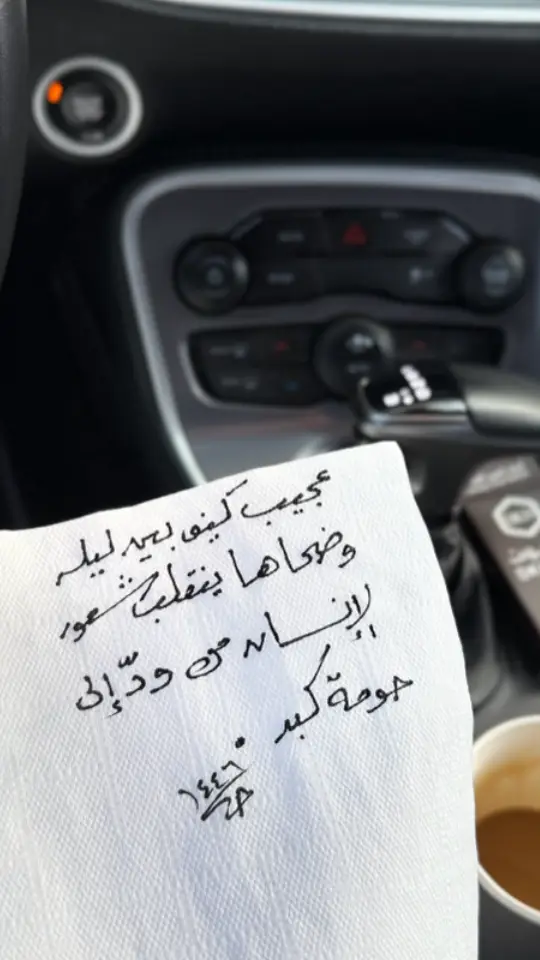 عجيب كيف بين ليله
وضحاها ينقلب شعور
لإنسان من ودّ إلى
حومة كبد
١٤٤٦